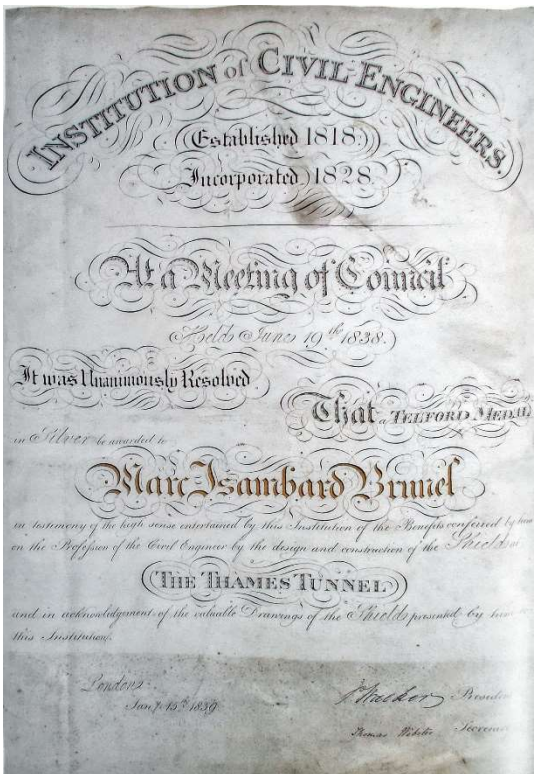 INSTITUTION of CIVIL ENGINEERS.
(Established 1818.)
Incorporated 1828.
At a Meeting of Council
(Held June 19th 1838.)
It was Unanimously Resolved
That a TELFORD MEDAL
in Silver be awarded to
Marc Isambard Brunel
in testimony of the high sense entertained by this Institution of the Benefits conferred by him
on the Profession of the Civil Engineer by the design and construction of the Shield at
THE THAMES TUNNEL
and in acknowledgement of the valuable Drawings of the Shield presented by him to
this Institution.
London
Jany 15th 1839
J. Walker President
Thomas Webster Secretary